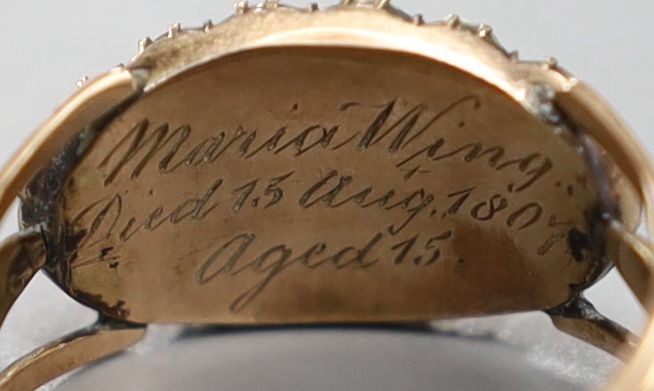 Maria Wing.
Died 15 Aug. 1807
Aged 15.